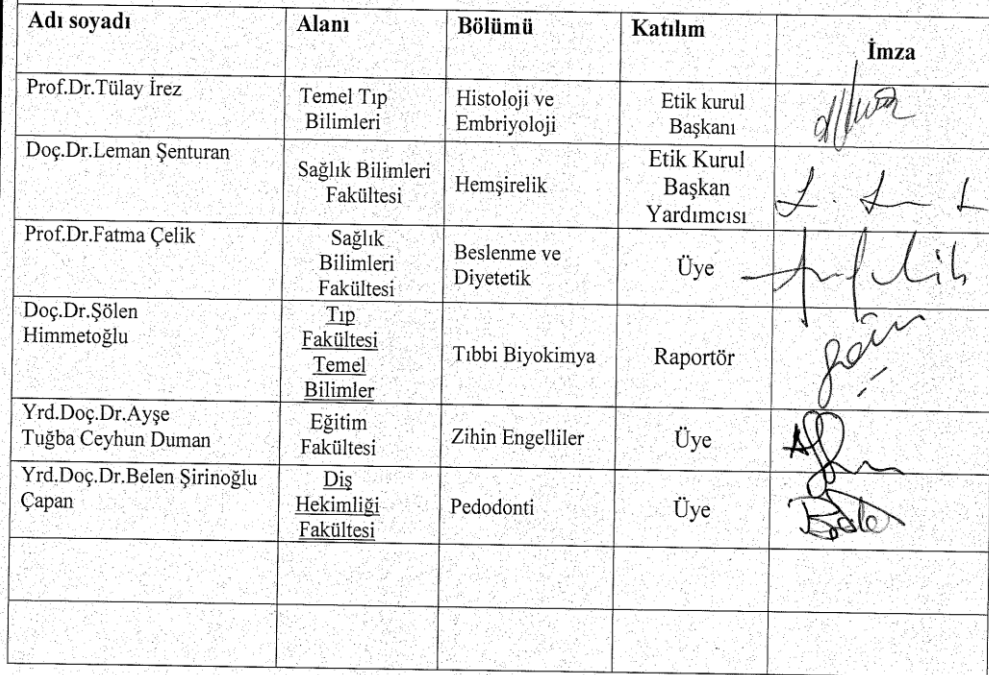 Adı soyadı Alanı Bölümü Katılım İmza
Prof.Dr.Tülay İrez
Temel Tıp
Bilimleri
Histoloji ve
Embriyoloji
Etik kurul
Başkanı
Doç.Dr.Leman Şenturan
Sağlık Bilimleri
Fakültesi
Hemşirelik
Etik Kurul
Başkan
Yardımcısı
Prof.Dr.Fatma Çelik
Sağlık
Bilimleri
Fakültesi
Beslenme ve
Diyetetik
Üye
Doç.Dr.Şölen
Himmetoğlu
Tıp
Fakültesi
Temel
Bilimler
Tıbbi Biyokimya
Raportör
Yrd.Doç.Dr.Ayşe
Tuğba Ceyhun Duman
Eğitim
Fakültesi
Zihin Engelliler
Üye
Yrd.Doç.Dr.Belen Şirinoğlu
Çapan
Diş
Hekimliği
Fakültesi
Pedodonti
Üye